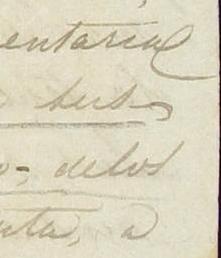 entarial
sus
o-, delos
nta, a